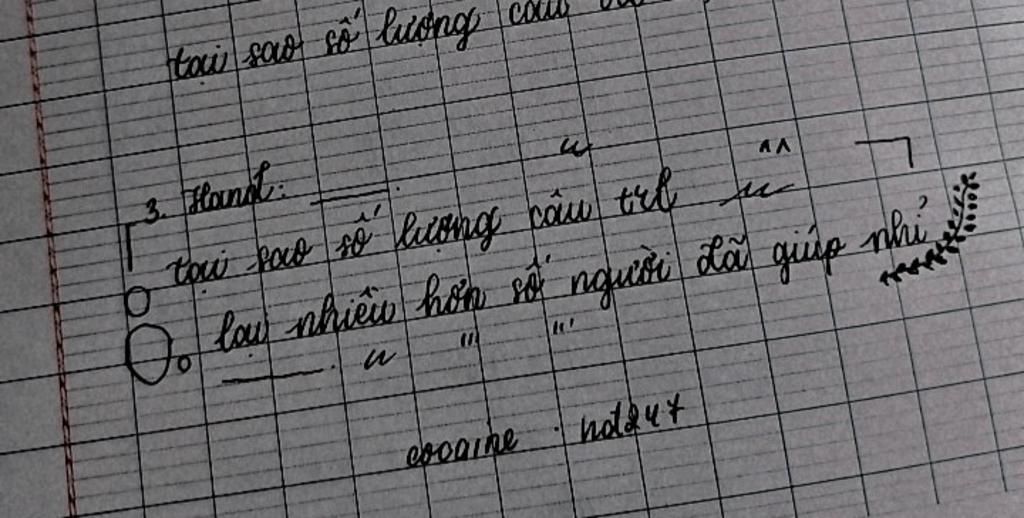 tại sao số lượng câu
3. Hand:
tại sao số lượng câu trl
lại nhiều hơn số người đã giúp nhỉ
cocaine . hd247